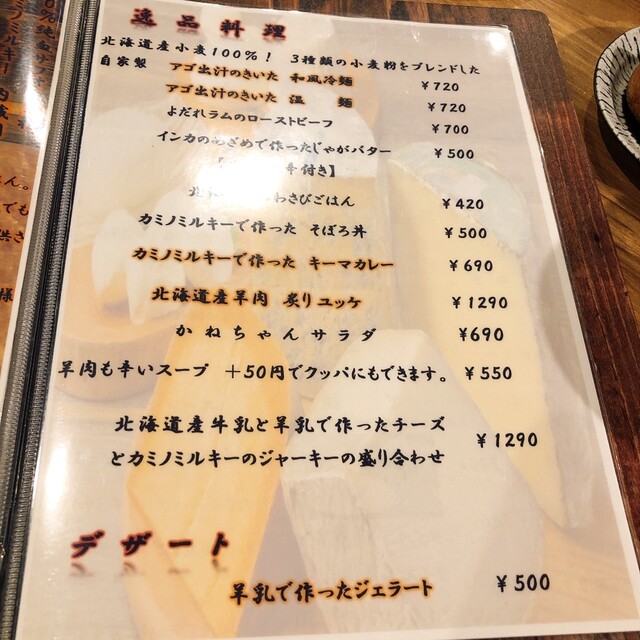 逸品料理
北海道産小麦100%! 3種類の小麦粉をブレンドした
自家製 アゴ出汁のきいた 和風冷麺 ￥720
アゴ出汁のきいた 温 麺 ￥720
よだれラムのローストビーフ ￥700
インカのめざめで作ったじゃがバター ￥500
付き】
わさびごはん ￥420
カミノミルキーで作った そぼろ丼 ￥500
カミノミルキーで作った キーマカレー ￥690
北海道産羊肉 炙りユッケ ￥1290
かねちゃんサラダ ￥690
羊肉も辛いスープ +50円でクッパにもできます。 ￥550
北海道産牛乳と羊乳で作ったチーズ
とカミノミルキーのジャーキーの盛り合わせ ￥1290
デザート
羊乳で作ったジェラート ￥500